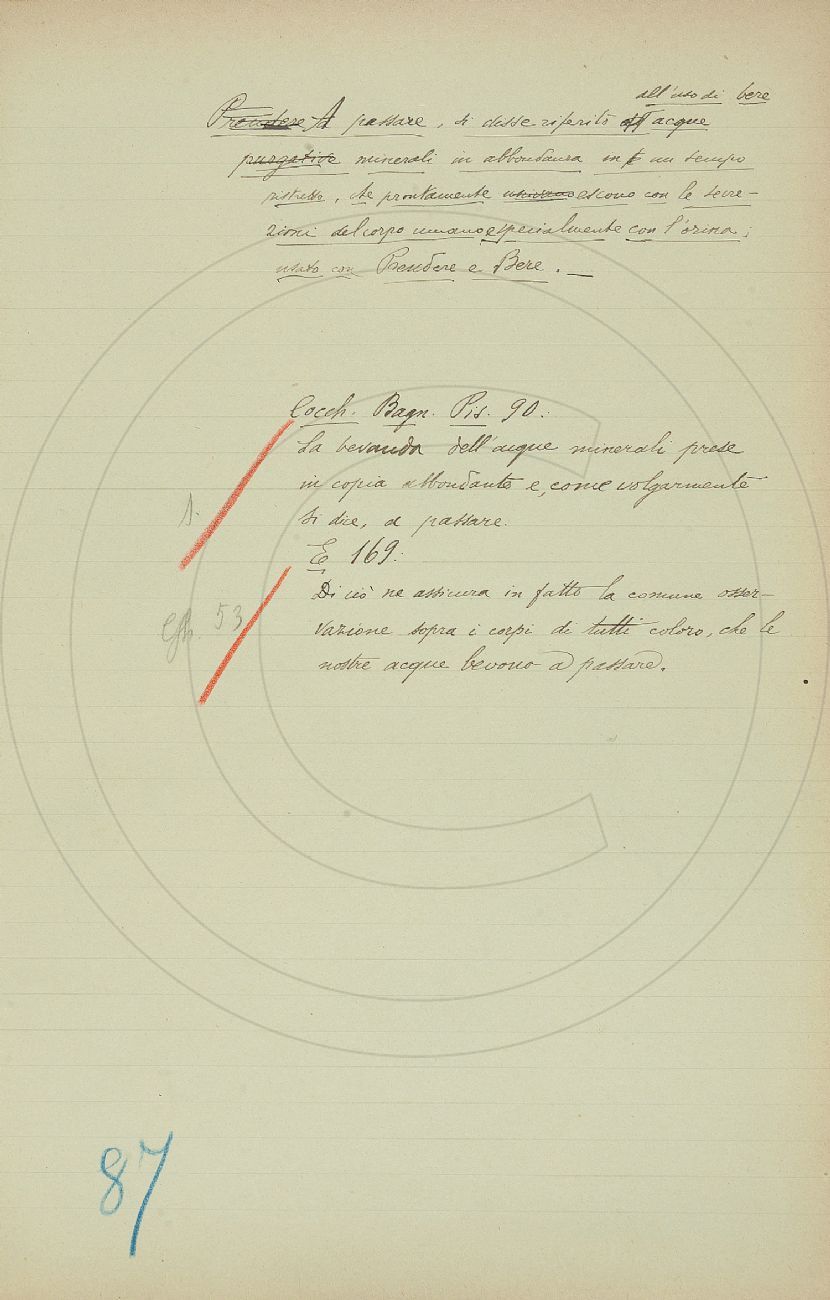 all'uso di bere
Prendere A passare, si disse riferito acque
purgative minerali in abbondanza in un tempo
ristretto, che prontamente escono con le secre-
zioni del corpo umano especialmente con l'orina;
usato con Prendere e Bere. —
Cocch. Bagn. Pis. 90:
La bevanda dell'acque minerali prese
in copia abbondante e, come volgarmente
si dice, a passare.
E 169:
Di ciò ne assicura in fatto la comune osser-
vazione sopra i corpi di tutti coloro, che le
nostre acque bevono a passare.
1.
53
87
C